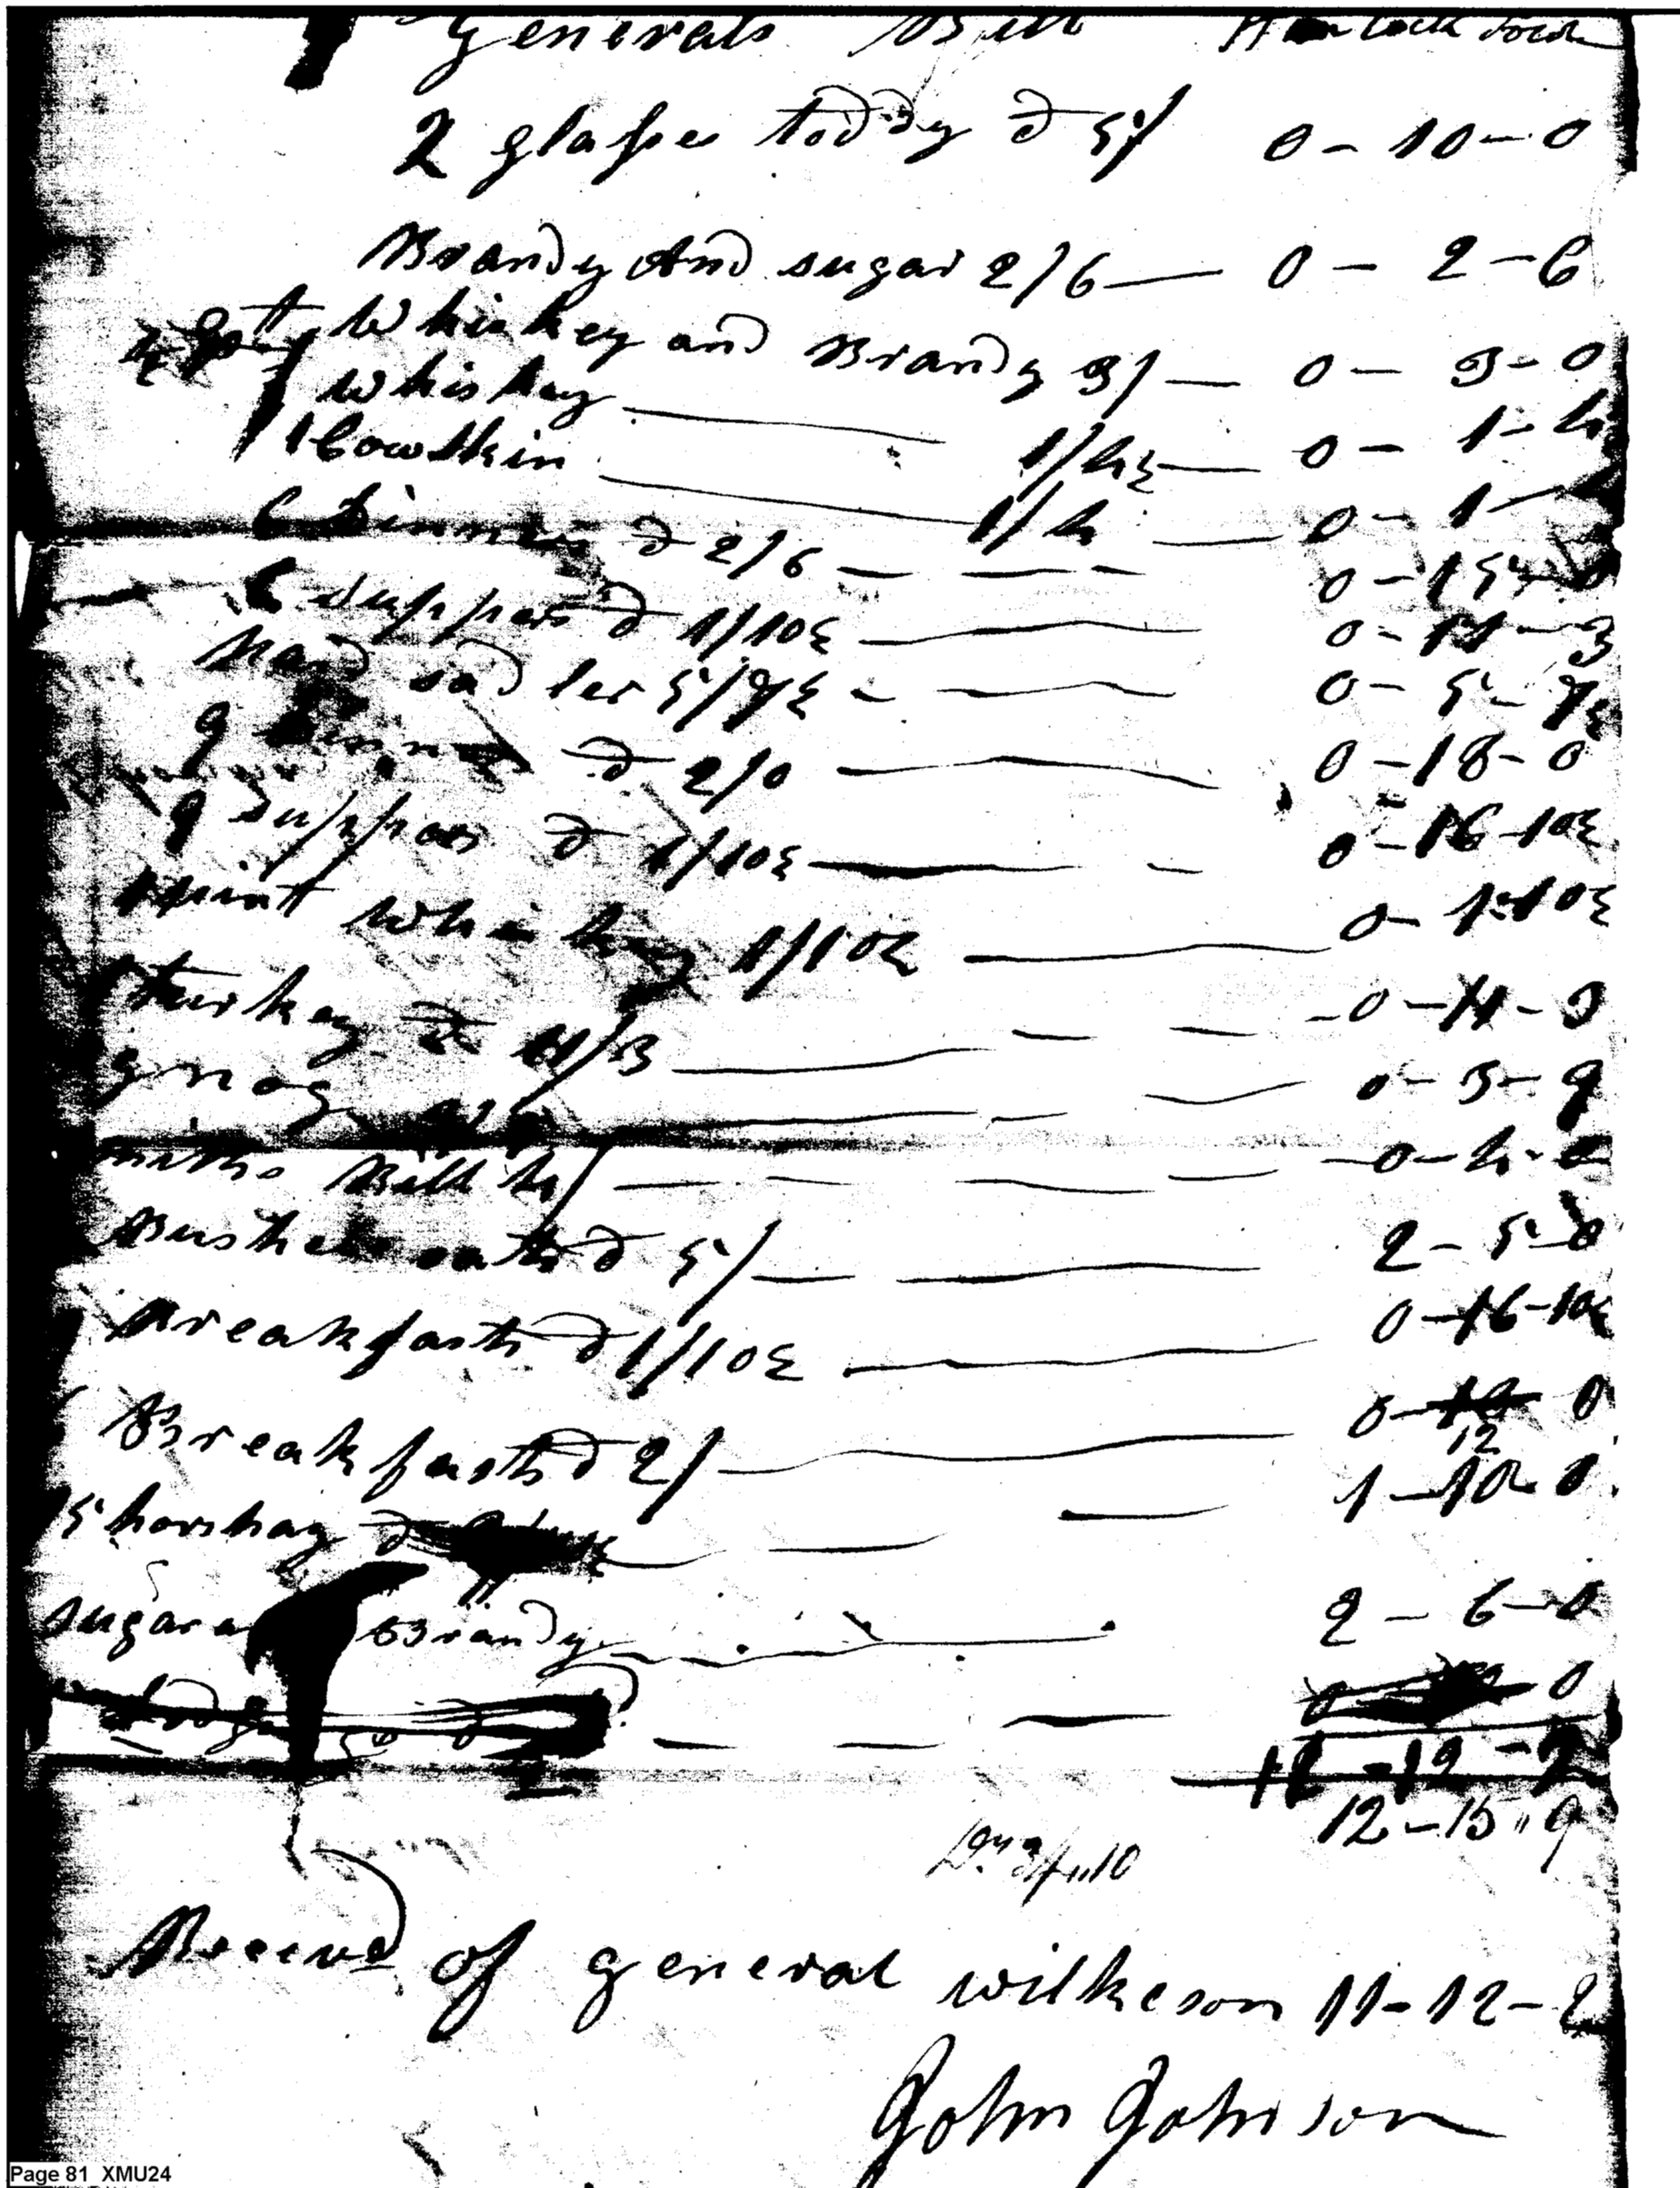 Generals Bill
2 glasses toddy @ 5/ 0-10-0
Brandy And sugar 2/6 — 0-2-6
Whiskey and Brandy 3/ — 0-3-0
Whiskey — 1/4½ — 0-1-4
1 Cowskin — 1/4 — 0-1-
6 Dinners @ 2/6 — 0-15-0
6 Suppers @ 1/10½ — 0-11-3
sadler 5/7½ — 0-5-7½
9 Dinners @ 2/0 — 0-18-0
9 Suppers @ 1/10½ — 0-16-10½
1 pint Whiskey 1/10½ — 0-1-10½
turkey @ 11/3 — 0-11-3
g nog — 0-3-9
miths Bill 4/ — 0-4-0
Bushels oats @ 5/ — 2-5-0
Breakfasts @ 1/10½ — 0-16-10½
Breakfasts @ 2/ — 0-12-0
15 hors hay @ — 1-10-0
sugar Brandy — 2-6-0
11-12-2
12-15"9
Receivd of general wilkeson 11-12-2
John Johnson
Page 81 XMU24